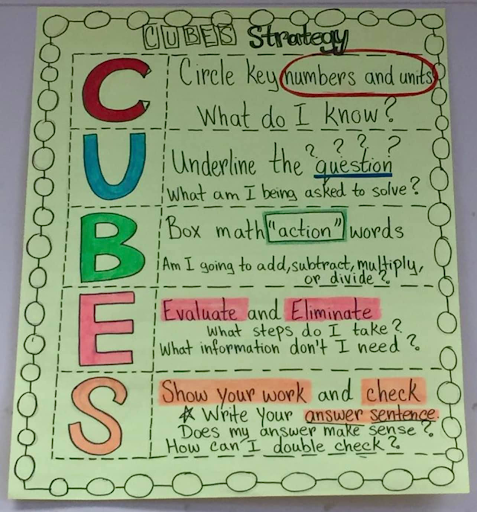 CUBES Strategy
C
Circle key numbers and units
What do I know?
U
? ? ? ?
Underline the question
What am I being asked to solve?
B
Box math "action" words
Am I going to add, subtract, multiply,
or divide?
E
Evaluate and Eliminate
What steps do I take?
What information don't I need?
S
Show your work and check
☆ Write your answer sentence.
Does my answer make sense?
How can I double check?